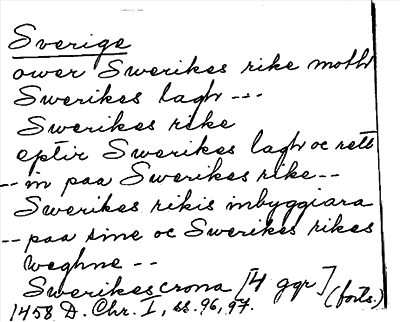 Sverige
ower Swerikes rike moth
Swerikes lagh ---
Swerikes rike
eptir Swerikes lagh oc rett
-- in paa Swerikes rike --
Swerikes rikis inbyggiara
-- paa sine oc Swerikes rikes
weghne --
Swerikescrona [4 ggr]
1458 D. Chr. I, ss. 96, 97. (forts.)